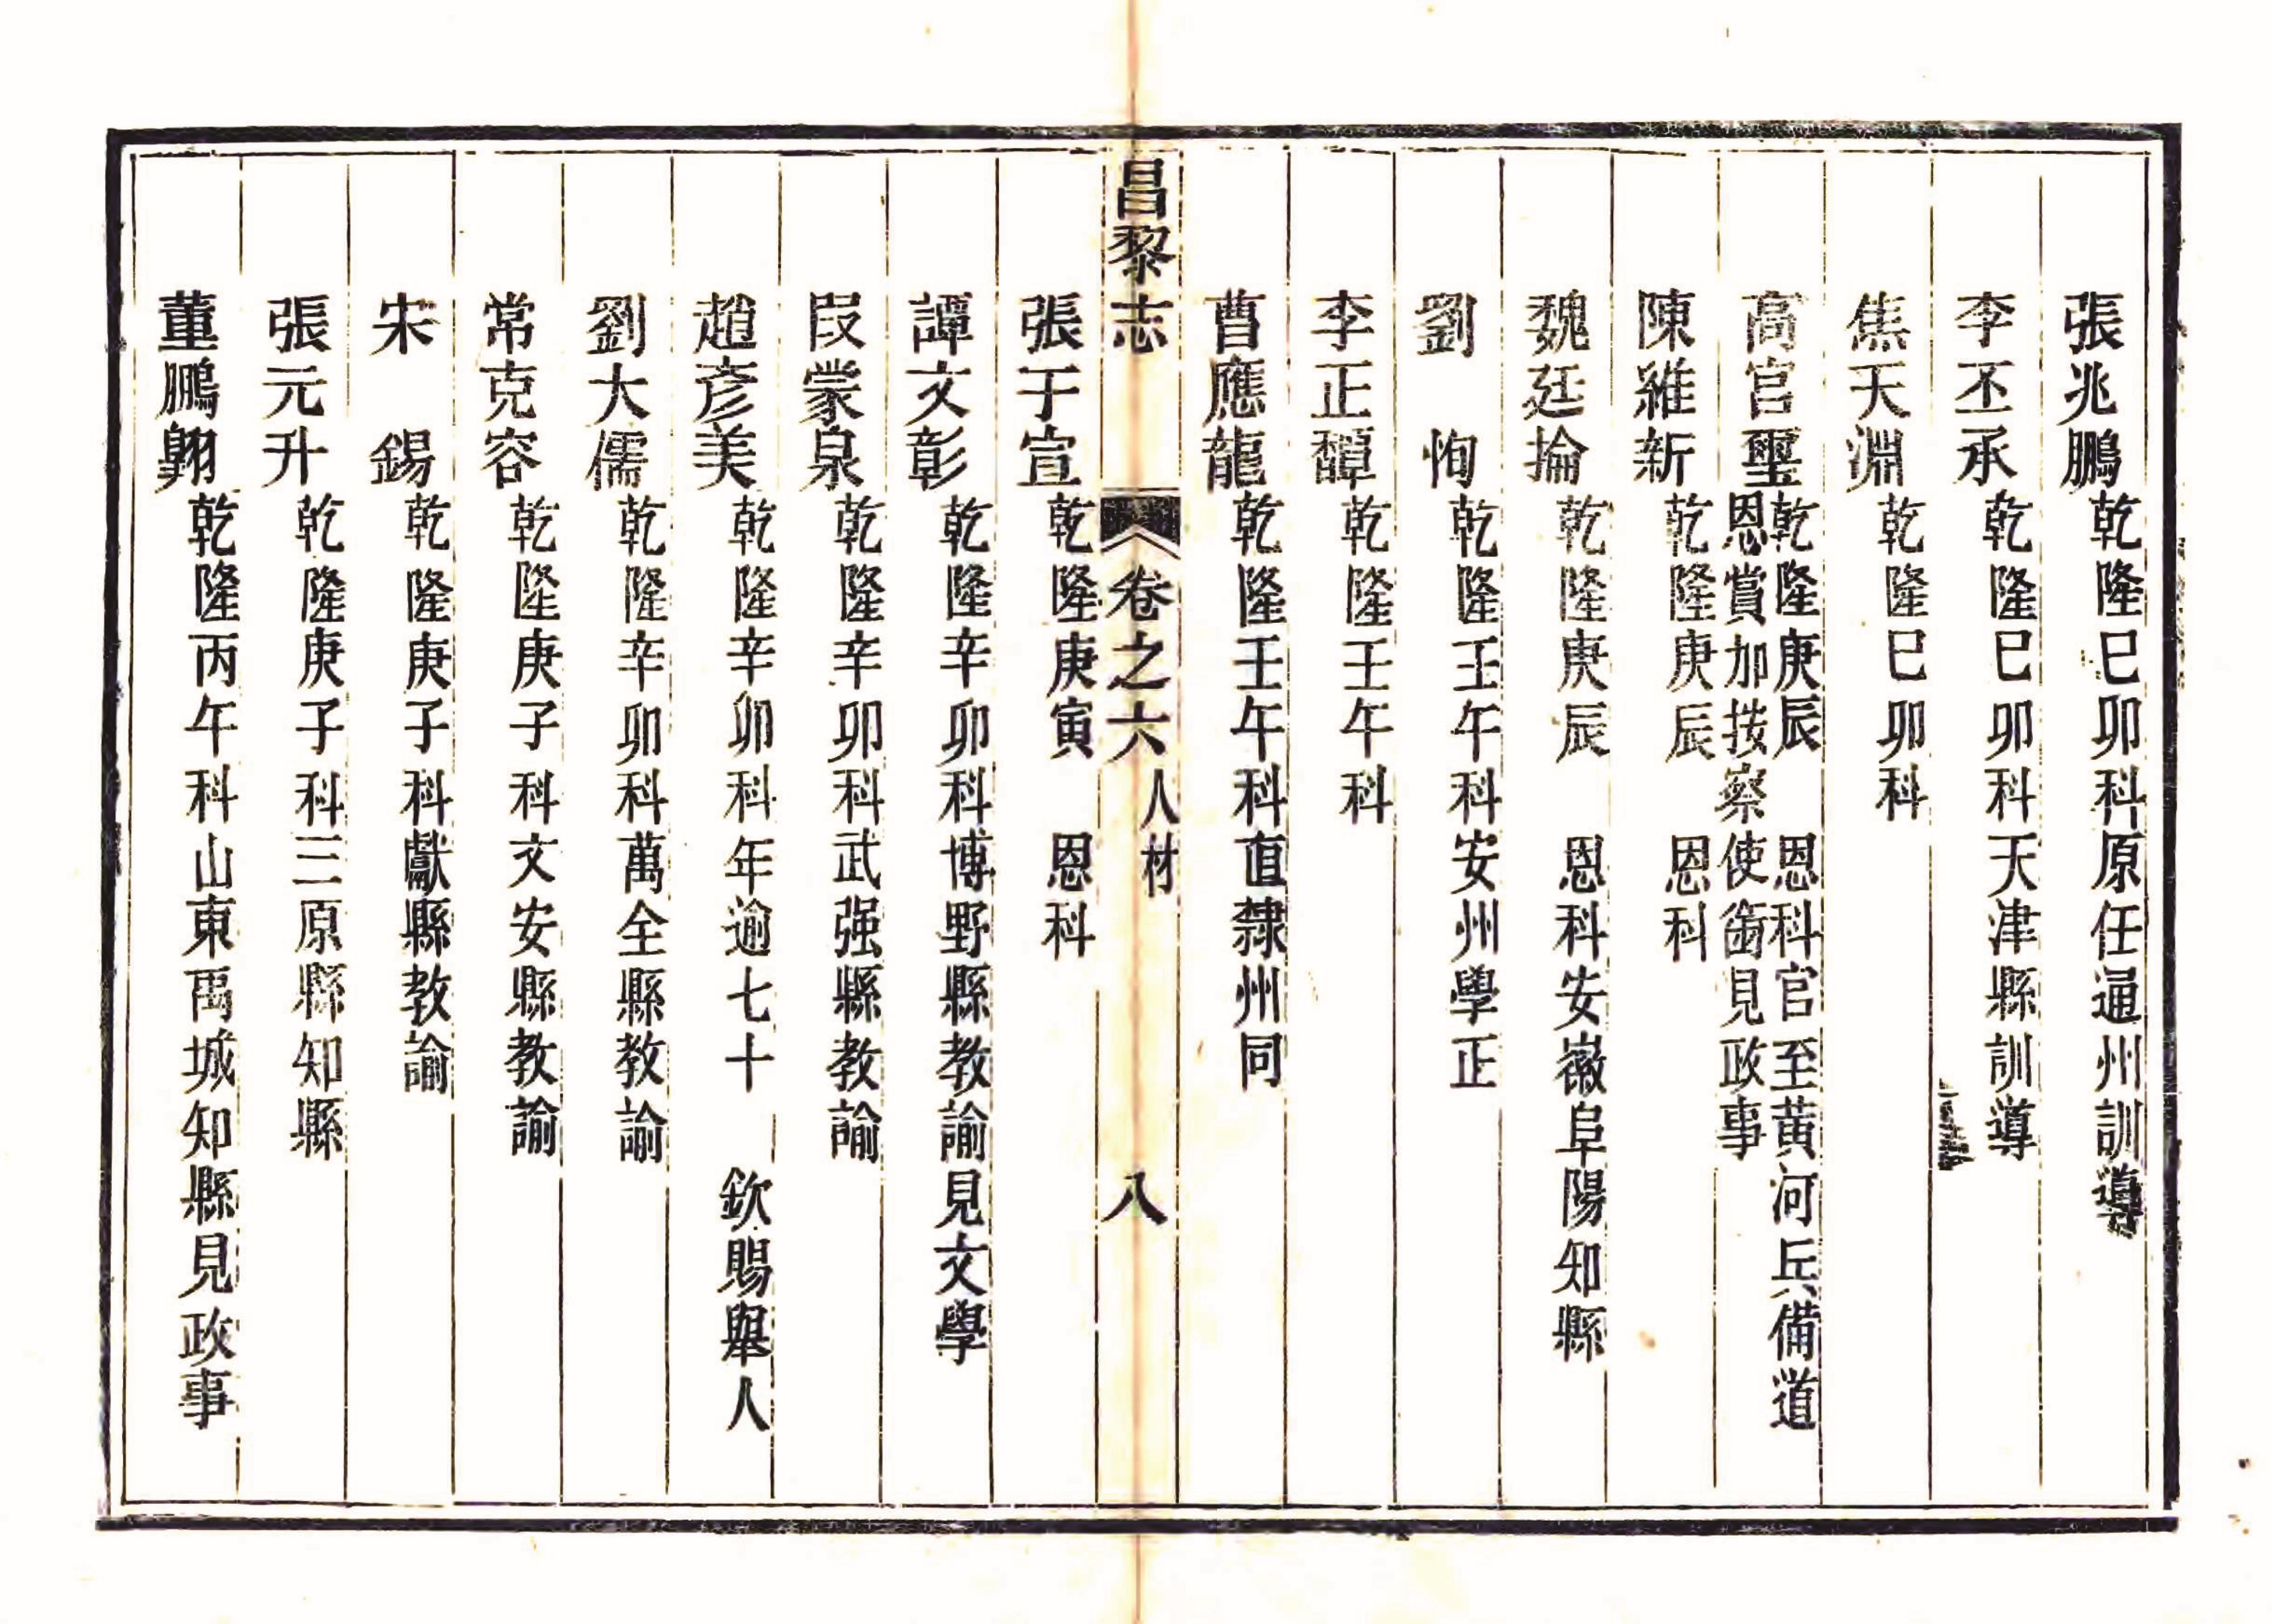 張兆鵬乾隆巳卯科原任通州訓導
李丕承乾隆巳卯科天津縣訓導
焦天淵乾隆巳卯科
高官璽乾隆庚辰　恩科官至黃河兵備道
恩賞加按察使銜見政事
陳維新乾隆庚辰　恩科
魏廷掄乾隆庚辰　恩科安徽阜陽知縣
劉　恂乾隆壬午科安州學正
李正馥乾隆壬午科
曹應龍乾隆壬午科直隸州同
昌黎志　卷之六人材　八
張于宣乾隆庚寅　恩科
譚文彰乾隆辛卯科博野縣教諭見文學
段蒙泉乾隆辛卯科武强縣教諭
趙彥美乾隆辛卯科年逾七十　欽賜舉人
劉大儒乾隆辛卯科萬全縣教諭
常克容乾隆庚子科文安縣教諭
宋　錫乾隆庚子科獻縣教諭
張元升乾隆庚子科三原縣知縣
董鵬翺乾隆丙午科山東禹城知縣見政事